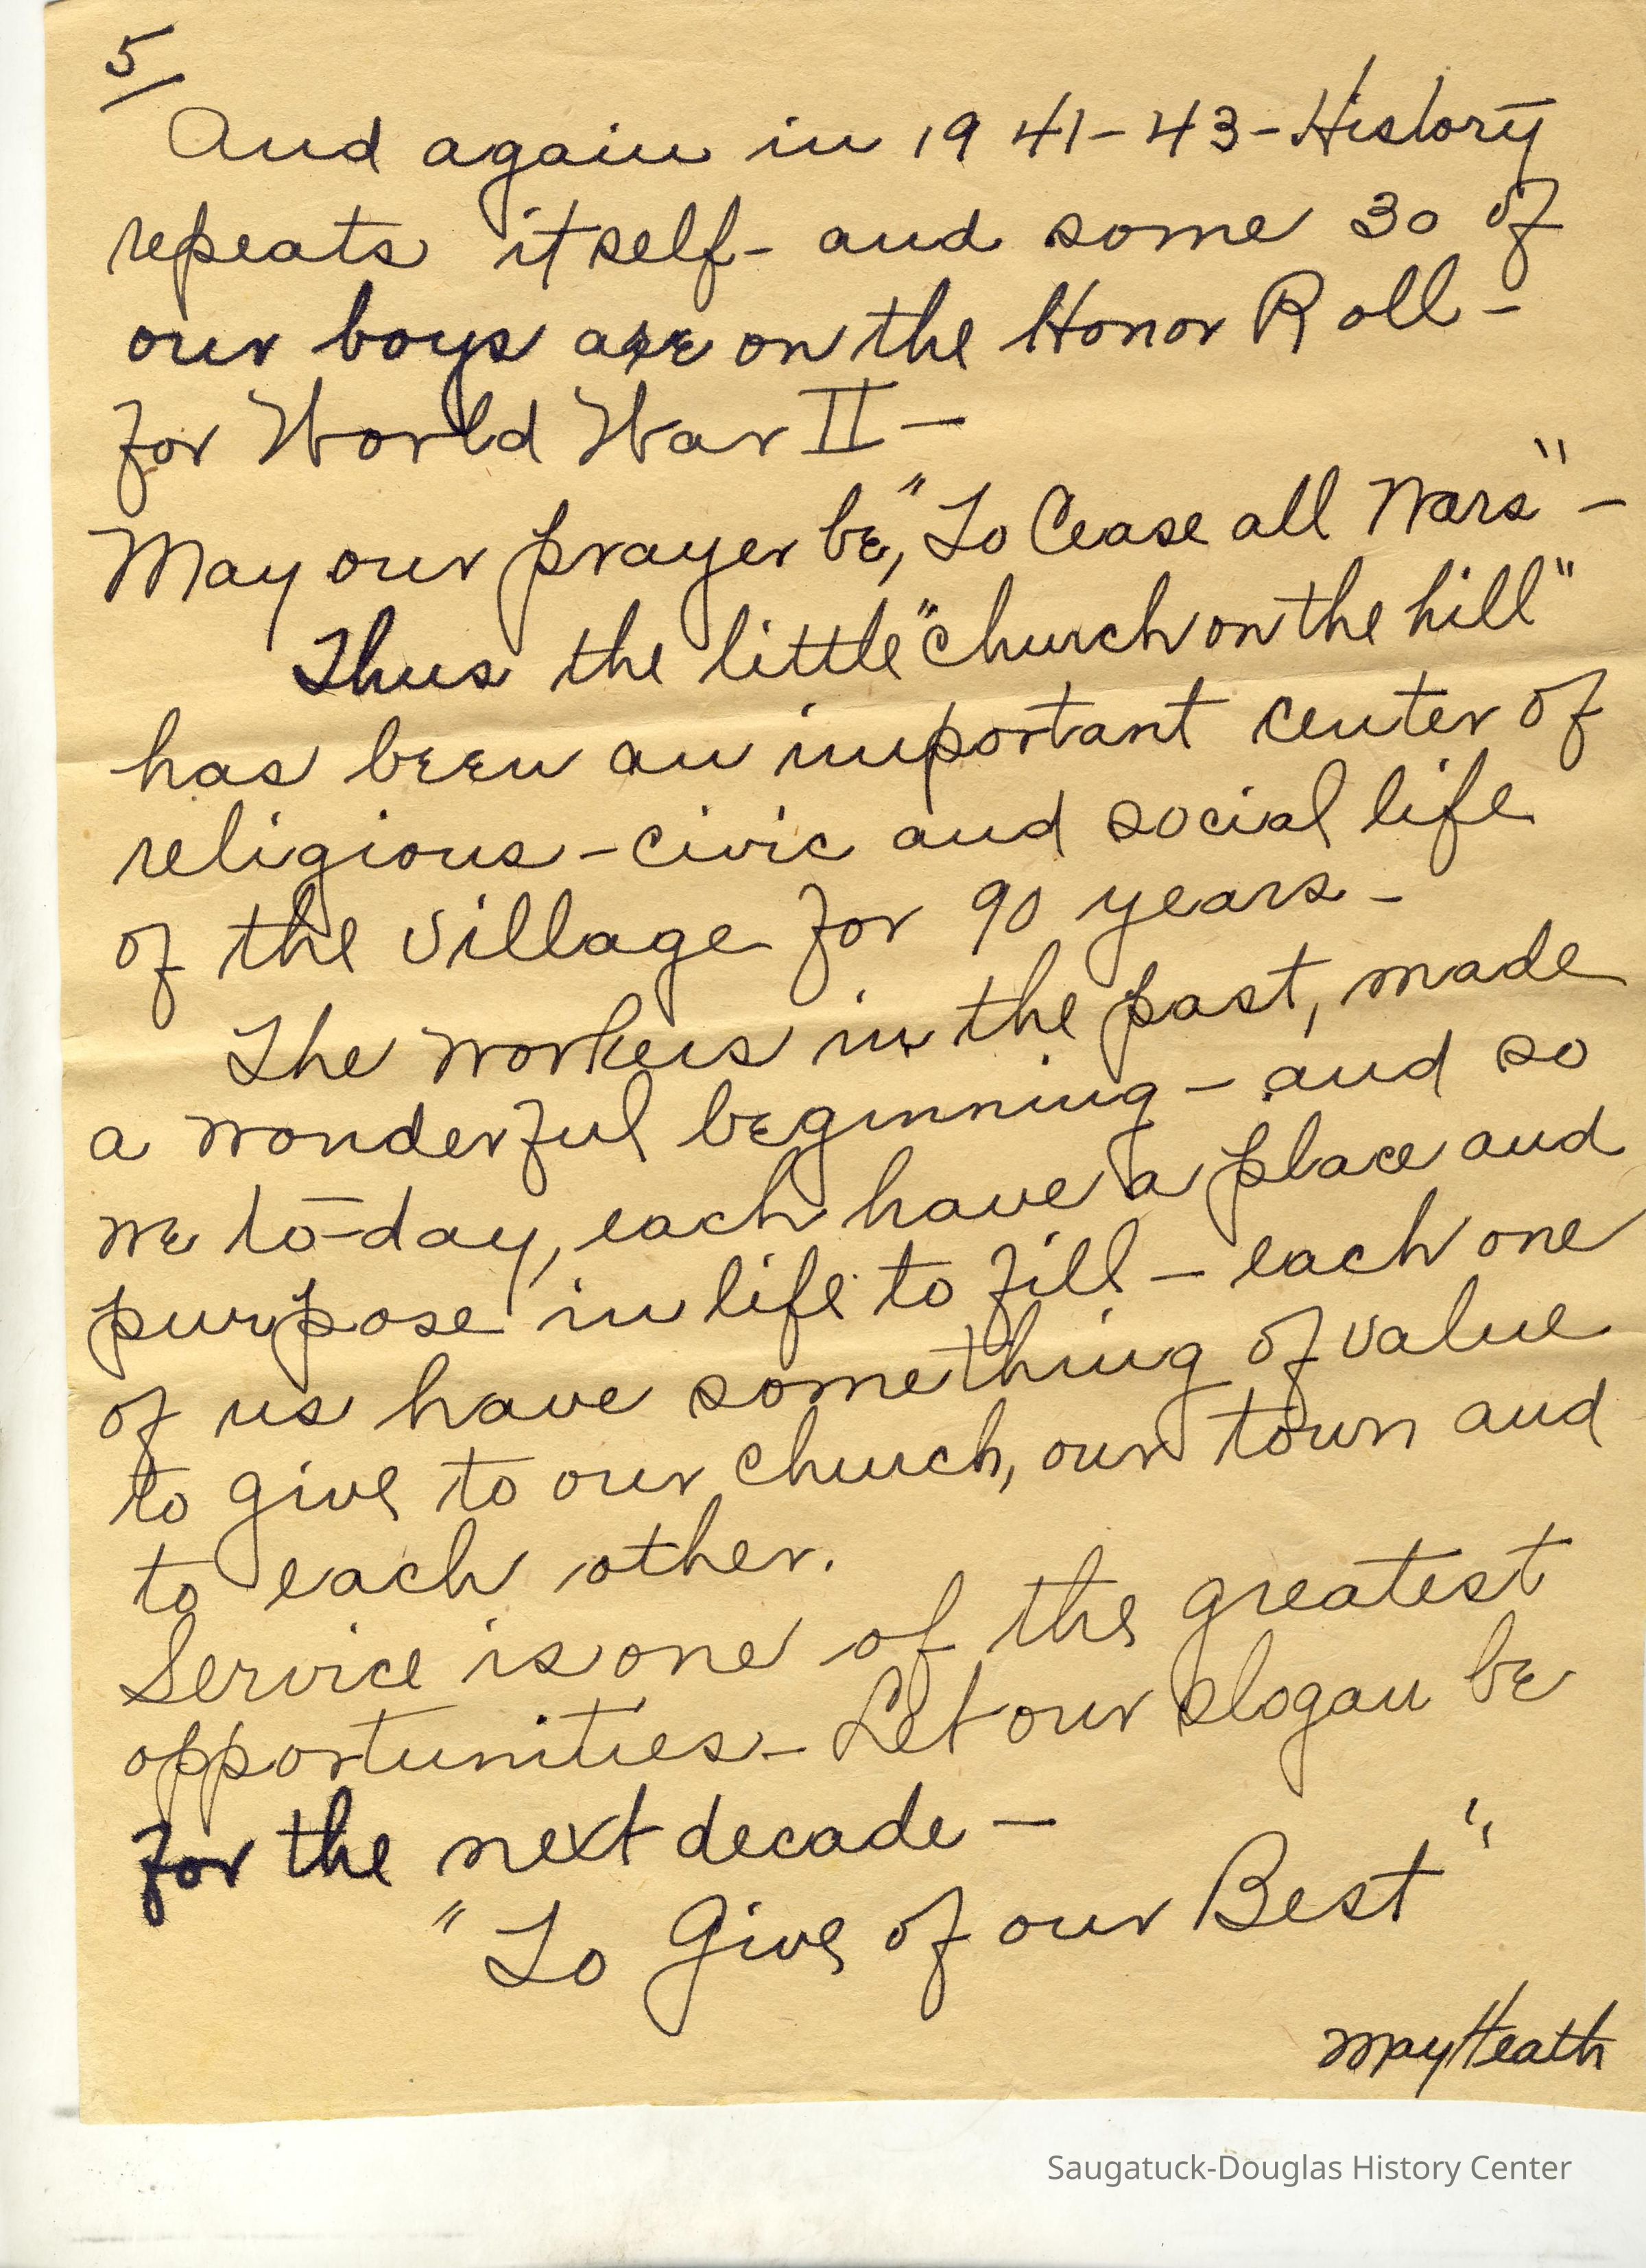 5/
And again in 1941-43-History
repeats itself- and some 30 of
our boys are on the Honor Roll-
for World War II-
May our prayer be, "To Cease all Wars"-
Thus the little "church on the hill"
has been an important center of
religious-civic and social life
of the village for 90 years-
The workers in the past, made
a wonderful beginning- and so
we to-day, each have a place and
purpose in life to fill- each one
of us have something of value
to give to our church, our town and
to each other.
Service is one of the greatest
opportunities- Let our slogan be
for the next decade-
"To Give of our Best"
May Heath
Saugatuck-Douglas History Center